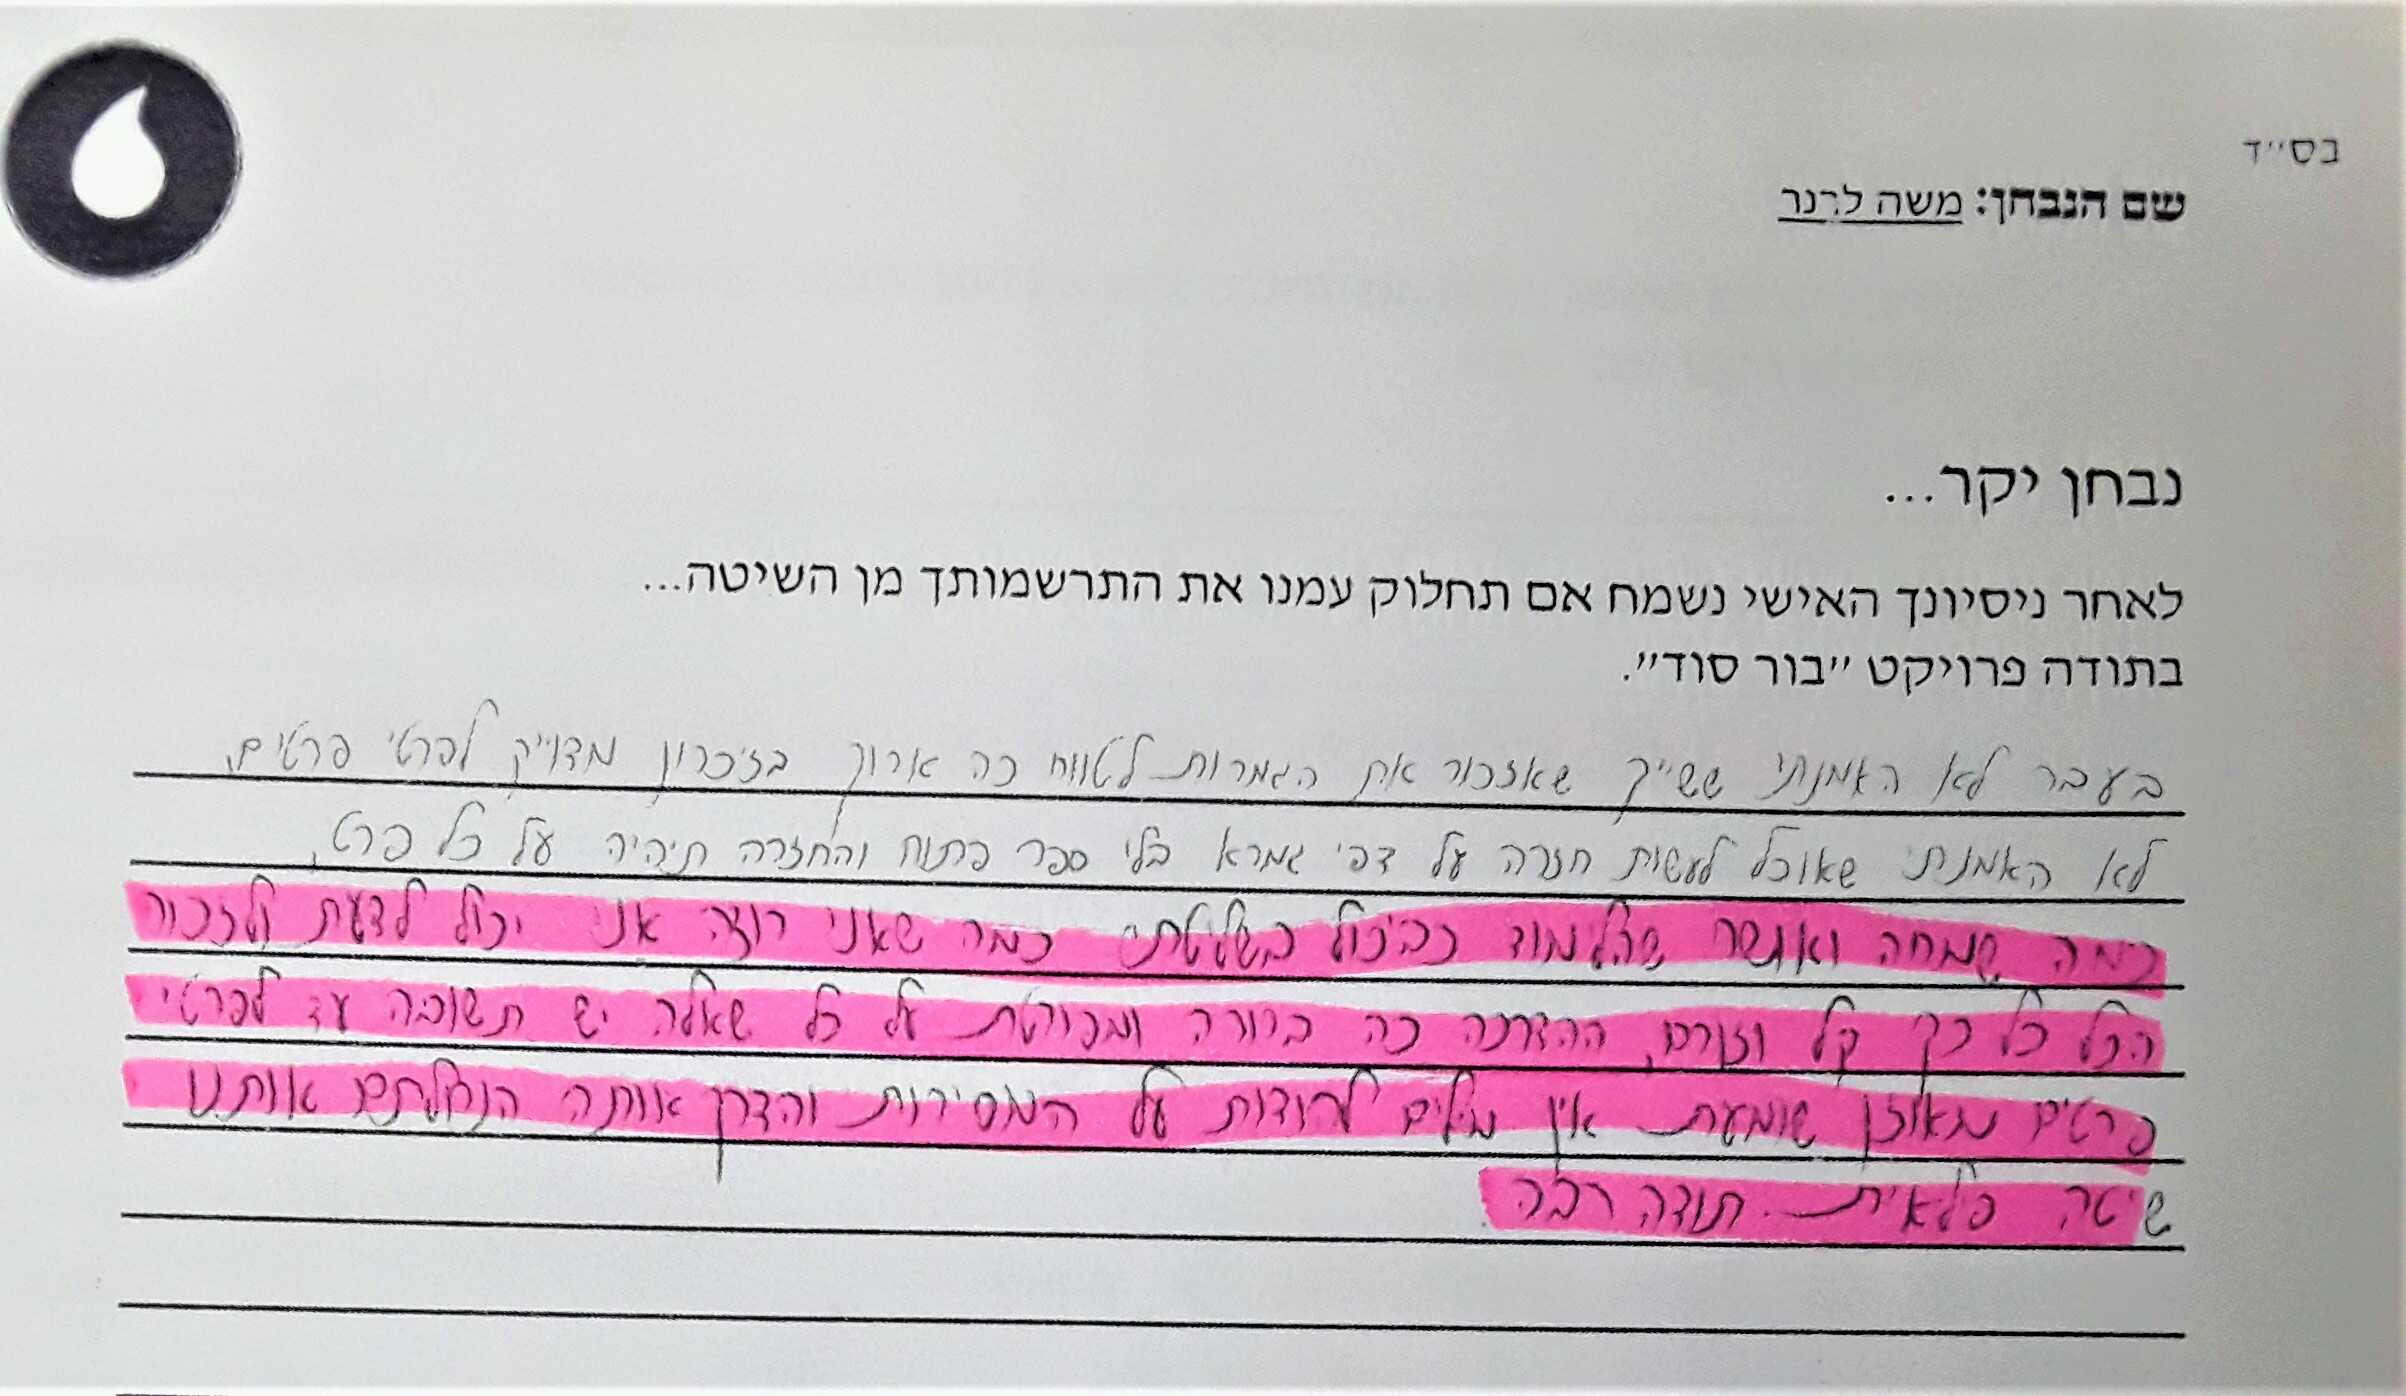 בס״ד
שם הנבחן: משה לרנר
נבחן יקר...
לאחר ניסיונך האישי נשמח אם תחלוק עמנו את התרשמותך מן השיטה...
בתודה פרויקט ״בור סוד״.
בעבר לא האמנתי ששייך שאזכור את הגמרות לטווח כה ארוך בזיכרון מדוייק לפרטי פרטים.
לא האמנתי שאוכל לעשות חזרה על דפי גמרא בלי ספר פתוח והחזרה תיהיה על כל פרט.
כמה שמחה ואושר שהלימוד כביכול בשליטתי כמה שאני רוצה אני יכול לדעת ולזכור
הכל כל כך קל וזורם, ההדרכה כה ברורה ומפורטת על כל שאלה יש תשובה עד לפרטי
פרטים מאוזן שומעת אין מילים להודות על המסירות והדרך אותה הנחלתם אותנו
שיטה פילאית. תודה רבה.